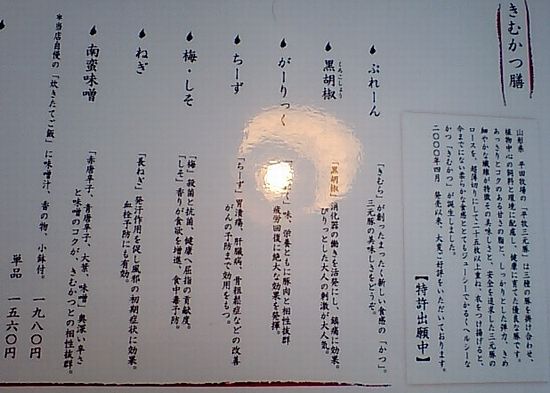 きむかつ膳
山形県 平田牧場の「平牧三元豚」は三種の豚を掛け合わせ、
植物中心の飼料と環境に配慮し、健康に育てた優良な豚です。
あっさりとコクのある甘さの脂と、しっかりした弾力、きめ
細やかな繊維が特徴。その美味しさと、やわらかさを追求した三元豚の
ロースを、超薄切りにして二十五枚以上重ね、衣をつけ揚げると、
今までにない柔らかな食感ととてもジューシーでかるくヘルシーな
かつ「きむかつ」が誕生しました。
二〇〇〇年四月 発売以来、大変ご好評をいただいております。
【特許出願中】
ぷれーん
「きむら」が創ったまったく新しい食感の「かつ」。
三元豚の美味しさをどうぞ。
黒胡椒
「黒胡椒」消化器の働きを活発にし、鎮痛に効果。
ぴりっとした大人の刺激が大人気。
がーりっく
味、栄養ともに豚肉と相性抜群
疲労回復に絶大な効果を発揮。
ちーず
「ちーず」胃潰瘍、肝臓病、骨粗鬆症などの改善
がんの予防まで効用をもつ。
梅・しそ
「梅」殺菌と抗菌、健康へ屈指の貢献度。
「しそ」香りが食欲を増進、食中毒予防。
ねぎ
「長ねぎ」発汗作用を促し風邪の初期症状に効果。
血栓予防にも有効。
南蛮味噌
「赤唐辛子、青唐辛子、大葉、味噌」奥深い辛さ
と味噌のコクが、きむかつとの相性抜群。
*当店自慢の「炊きたてご飯」に味噌汁、香の物、小鉢付。 一九八〇円
単品 一五六〇円